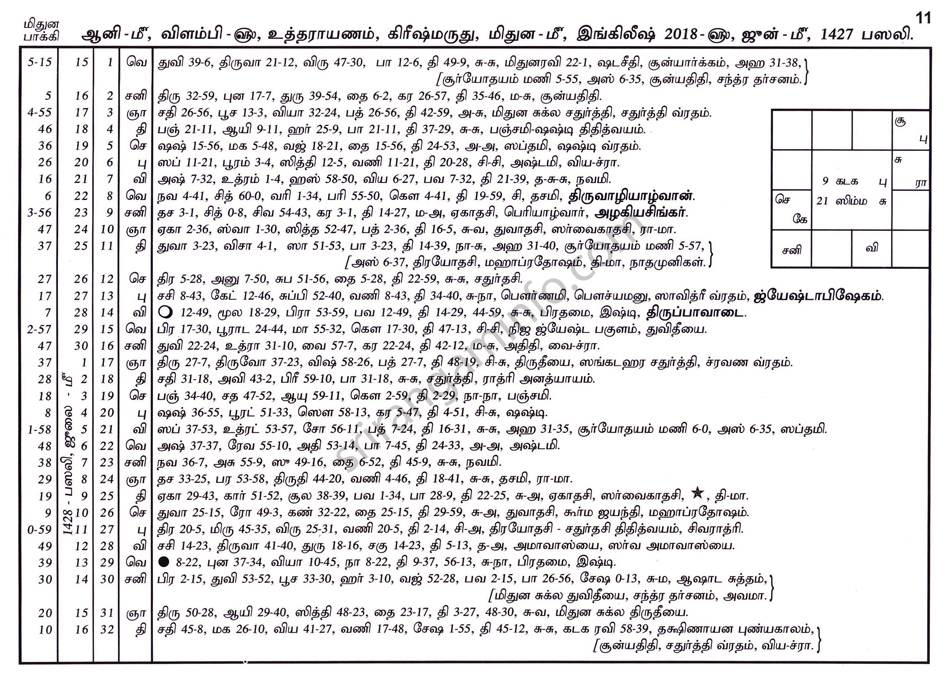 11
மிதுன பாக்கி
ஆனி-மீ, விளம்பி-௵, உத்தராயணம், கிரீஷ்மருது, மிதுன-மீ, இங்கிலீஷ் 2018-௵, ஜுன்-மீ, 1427 பஸலி.
5-15 15 1 வெ துவி 39-6, திருவா 21-12, விரு 47-30, பா 12-6, தி 49-9, சு-சு, மிதுனரவி 22-1, ஷடசீதி, சூன்யார்க்கம், அஹ 31-38,
[சூர்யோதயம் மணி 5-55, அஸ் 6-35, சூன்யதிதி, சந்த்ர தர்சனம்.
5 16 2 சனி திரு 32-59, புன 17-7, துரு 39-54, தை 6-2, கர 26-57, தி 35-46, ம-சு, சூன்யதிதி.
4-55 17 3 ஞா சதி 26-56, பூச 13-3, வியா 32-24, பத் 26-56, தி 42-59, அ-சு, மிதுன சுக்ல சதுர்த்தி, சதுர்த்தி வ்ரதம்.
46 18 4 தி பஞ் 21-11, ஆயி 9-11, ஹர் 25-9, பா 21-11, தி 37-29, சு-சு, பஞ்சமி-ஷஷ்டி திதித்வயம்.
36 19 5 செ ஷஷ் 15-56, மக 5-48, வஜ் 18-21, தை 15-56, தி 24-53, அ-அ, ஸப்தமி, ஷஷ்டி வ்ரதம்.
26 20 6 பு ஸப் 11-21, பூரம் 3-4, ஸித்தி 12-5, வணி 11-21, தி 20-28, சி-சி, அஷ்டமி, விய-ச்ரா.
16 21 7 வி அஷ் 7-32, உத்ரம் 1-4, ஹஸ் 58-50, விய 6-27, பவ 7-32, தி 21-39, த-சு-சு, நவமி.
6 22 8 வெ நவ 4-41, சித் 60-0, வரி 1-34, பரி 55-50, கௌ 4-41, தி 19-59, சி, தசமி, திருவாழியாழ்வான்.
3-56 23 9 சனி தச 3-1, சித் 0-8, சிவ 54-43, கர 3-1, தி 14-27, ம-அ, ஏகாதசி, பெரியாழ்வார், அழகியசிங்கர்.
47 24 10 ஞா ஏகா 2-36, ஸ்வா 1-30, ஸித்த 52-47, பத் 2-36, தி 16-5, சு-வ, துவாதசி, ஸர்வைகாதசி, ரா-மா.
37 25 11 தி துவா 3-23, விசா 4-1, ஸா 51-53, பா 3-23, தி 14-39, நா-சு, அஹ 31-40, சூர்யோதயம் மணி 5-57,
[அஸ் 6-37, திரயோதசி, மஹாப்ரதோஷம், தி-மா, நாதமுனிகள்.
27 26 12 செ திர 5-28, அனு 7-50, சுப 51-56, தை 5-28, தி 22-59, சு-சு, சதுர்தசி.
17 27 13 பு சசி 8-43, கேட் 12-46, சுப்பி 52-40, வணி 8-43, தி 34-40, சு-நா, பௌர்ணமி, பௌச்யமனு, ஸாவித்ரீ வ்ரதம், ஜ்யேஷ்டாபிஷேகம்.
7 28 14 வி 12-49, மூல 18-29, பிரா 53-59, பவ 12-49, தி 14-29, 44-59, சு-சு, பிரதமை, இஷ்டி, திருப்பாவாடை.
2-57 29 15 வெ பிர 17-30, பூராட 24-44, மா 55-32, கௌ 17-30, தி 47-13, சி-சி, நிஜ ஜ்யேஷ்ட பகுளம், துவிதீயை.
47 30 16 சனி துவி 22-24, உத்ரா 31-10, வை 57-7, கர 22-24, தி 42-12, ம-சு, அதிதி, வை-ச்ரா.
37 1 17 ஞா திரு 27-7, திருவோ 37-23, விஷ் 58-26, பத் 27-7, தி 48-19, சி-சு, திருதீயை, ஸங்கடஹர சதுர்த்தி, ச்ரவண வ்ரதம்.
28 2 18 தி சதி 31-18, அவி 43-2, பிரீ 59-10, பா 31-18, சு-சு, சதுர்த்தி, ராத்ரி அனத்யாயம்.
18 3 19 செ பஞ் 34-40, சத 47-52, ஆயு 59-11, கௌ 2-59, தி 2-29, நா-நா, பஞ்சமி.
8 4 20 பு ஷஷ் 36-55, பூரட் 51-33, ஸௌ 58-13, கர 5-47, தி 4-51, சி-சு, ஷஷ்டி.
1-58 5 21 வி ஸப் 37-53, உத்ரட் 53-57, சோ 56-11, பத் 7-24, தி 16-31, சு-சு, அஹ 31-35, சூர்யோதயம் மணி 6-0, அஸ் 6-35, ஸப்தமி.
48 6 22 வெ அஷ் 37-37, ரேவ 55-10, அதி 53-14, பா 7-45, தி 24-33, அ-அ, அஷ்டமி.
38 7 23 சனி நவ 36-7, அசு 55-9, ஸு 49-16, தை 6-52, தி 45-9, சு-சு, நவமி.
29 8 24 ஞா தச 33-25, பர 53-58, திருதி 44-20, வணி 4-46, தி 18-41, சு-சு, தசமி, ரா-மா.
19 9 25 தி ஏகா 29-43, கார் 51-52, சூல 38-39, பவ 1-34, பா 28-9, தி 22-25, சு-அ, ஏகாதசி, ஸர்வைகாதசி, ★, தி-மா.
9 10 26 செ துவா 25-15, ரோ 49-3, கண் 32-22, தை 25-15, தி 29-59, சு-அ, துவாதசி, கூர்ம ஜயந்தி, மஹாப்ரதோஷம்.
0-59 11 27 பு திர 20-5, மிரு 45-35, விரு 25-31, வணி 20-5, தி 2-14, சி-அ, திரயோதசி - சதுர்தசி திதித்வயம், சிவராத்ரி.
49 12 28 வி சசி 14-23, திருவா 41-40, துரு 18-16, சகு 14-23, தி 5-13, த-அ, அமாவாஸ்யை, ஸர்வ அமாவாஸ்யை.
39 13 29 வெ 8-22, புன 37-34, வியா 10-45, நா 8-22, தி 9-37, 56-13, சு-நா, பிரதமை, இஷ்டி.
30 14 30 சனி பிர 2-15, துவி 53-52, பூச 33-30, ஹர் 3-10, வஜ் 52-28, பவ 2-15, பா 26-56, சேஷ 0-13, சு-ம, ஆஷாட சுத்தம்,
[மிதுன சுக்ல துவிதீயை, சந்த்ர தர்சனம், அவமா.
20 15 31 ஞா திரு 50-28, ஆயி 29-40, ஸித்தி 48-23, தை 23-17, தி 3-27, 48-30, சு-வ, மிதுன சுக்ல திருதீயை.
10 16 32 தி சதி 45-8, மக 26-10, விய 41-27, வணி 17-48, சேஷ 1-55, தி 45-12, சு-சு, கடக ரவி 58-39, தக்ஷிணாயன புண்யகாலம்,
[சூன்யதிதி, சதுர்த்தி வ்ரதம், விய-ச்ரா.
1428 - பஸலி, ஜுலை - மீ
சூ
பு
சு
ரா
9 கடக பு
21 ஸிம்ம சு
செ
கே
சனி
வி
srirangaminfo.com